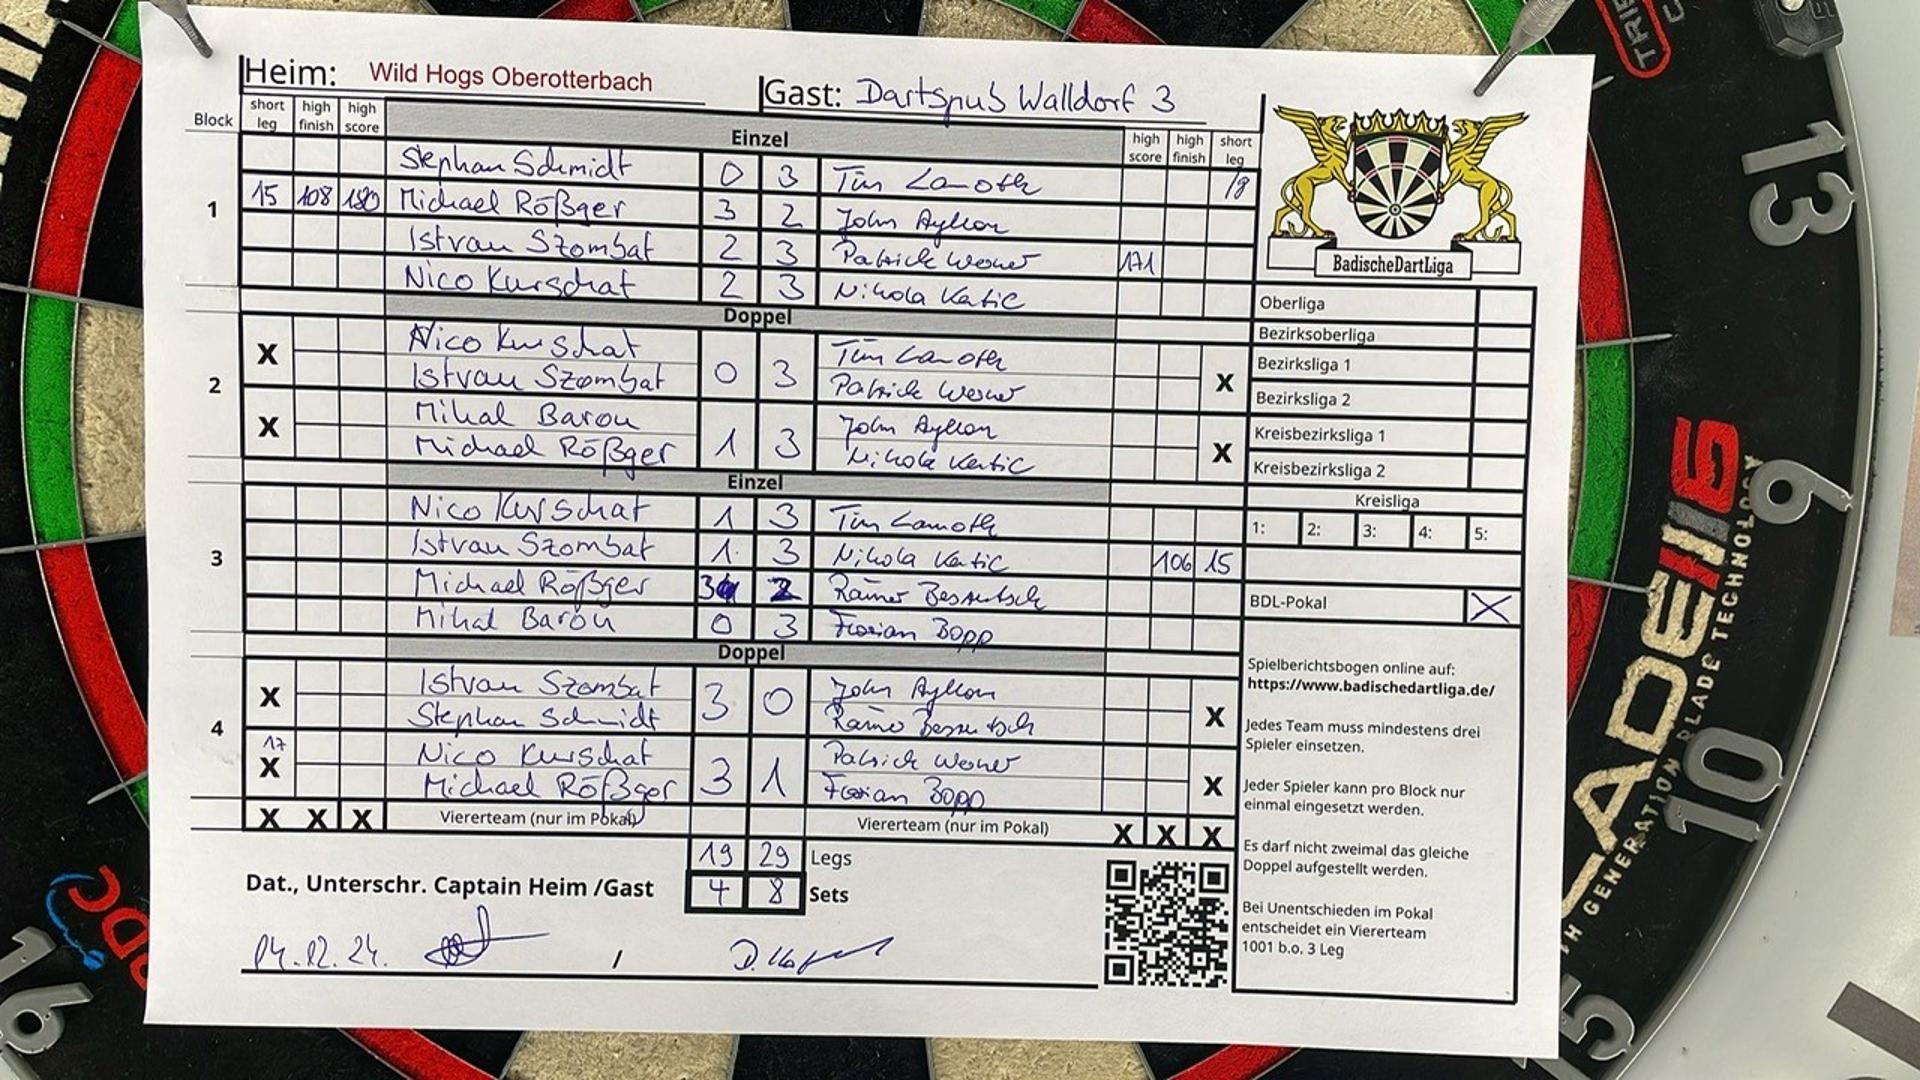 Heim: Wild Hogs Oberotterbach
Gast: Dartspub Walldorf 3
Block short leg high finish high score Einzel high score high finish short leg
Stephan Schmidt 0 3 Tim Lamoth
1 15 108 180 Michael Rößger 3 2 John Ayllon
Istvan Szombat 2 3 Patrick Weser 171
Nico Kurschat 2 3 Nikola Katic
Doppel
2 X Nico Kurschat 0 3 Tim Lamoth X
Istvan Szombat Patrick Weser
X Mihal Barou 1 3 John Ayllon X
Michael Rößger Nikola Katic
Einzel
3 Nico Kurschat 1 3 Tim Lamoth
Istvan Szombat 1 3 Nikola Katic 106 15
Michael Rößger 3 2 Rainer
Mihal Barou 0 3 Florian Bopp
Doppel
4 X Istvan Szombat 3 0 John Ayllon X
Stephan Schmidt Rainer
17 X Nico Kurschat 3 1 Patrick Weser X
Michael Rößger Florian Bopp
X X X Viererteam (nur im Pokal) Viererteam (nur im Pokal) X X X
19 29 Legs
4 8 Sets
Dat., Unterschr. Captain Heim /Gast
04.12.24. /
BadischeDartLiga
Oberliga
Bezirksoberliga
Bezirksliga 1
Bezirksliga 2
Kreisbezirksliga 1
Kreisbezirksliga 2
Kreisliga
1: 2: 3: 4: 5:
BDL-Pokal X
Spielberichtsbogen online auf:
https://www.badischedartliga.de/
Jedes Team muss mindestens drei
Spieler einsetzen.
Jeder Spieler kann pro Block nur
einmal eingesetzt werden.
Es darf nicht zweimal das gleiche
Doppel aufgestellt werden.
Bei Unentschieden im Pokal
entscheidet ein Viererteam
1001 b.o. 3 Leg
13
6
10
15
16